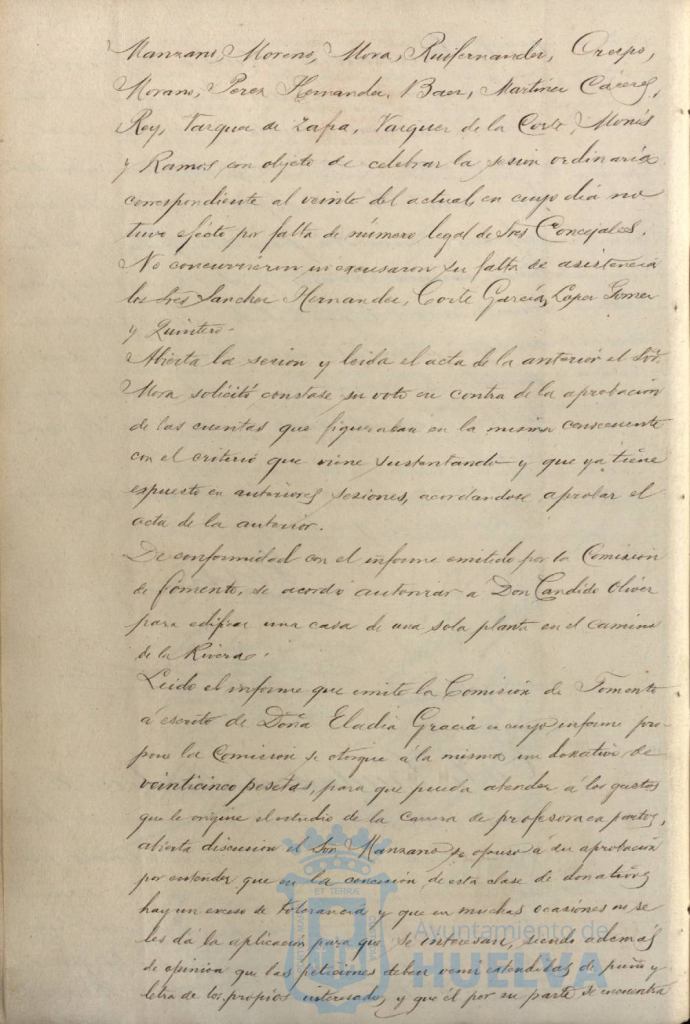 Manzano, Moreno, Mora, Ruifernandez, Crespo,
Morano, Perez Hernandez, Baez, Martinez Cáceres,
Rey, Vazquez de Zafra, Vazquez de la Corte, Monís
y Ramos con objeto de celebrar la sesión ordinaria
correspondiente al veinte del actual, en cuyo dia no
tuvo efecto por falta de número legal de Sres Concejales.
No concurrieron ni excusaron su falta de asistencia
los Sres Sanchez Hernandez, Corte García, Lopez Gomez
y Quintero.
Abierta la sesion y leida el acta de la anterior el Sor.
Mora solicitó constase su voto en contra de la aprobacion
de las cuentas que figuraban en la misma consecuente
con el criterio que viene sustentando y que ya tiene
expuesto en anteriores sesiones, acordandose aprobar el
acta de la anterior.
De conformidad con el informe emitido por la Comision
de fomento, se acordó autorizar á Don Candido Oliver
para edificar una casa de una sola planta en el camino
de la Rivera.
Leido el informe que emite la Comisión de Fomento
á escrito de Doña Eladia Gracia en cuyo informe pro-
pone la Comision se otorgue á la misma un donativo de
veinticinco pesetas, para que pueda atender á los gastos
que le origine el estudio de la Carrera de profesora en partos,
abierta discusion el Sor Manzano se opuso á su aprobacion
por entender que en la concesion de esta clase de donativos
hay un exceso de tolerancia y que en muchas ocasiones no se
les dá la aplicacion para que se interesan, siendo además
de opinion que las peticiones deben venir extendidas de puño y
letra de los propios interesados y que él por su parte se encuentra
ET TERRA
Ayuntamiento de
HUELVA